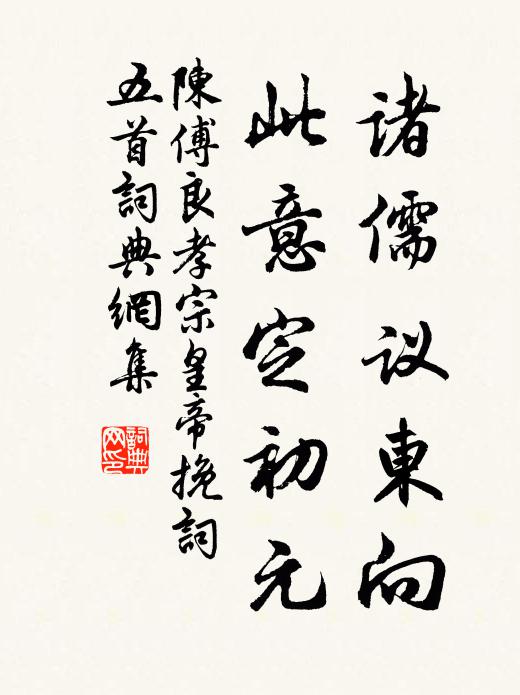 诸儒议東向
此意定初元
陳傅良孝宗皇帝挽詞
五首詞典網集
詞典
网印